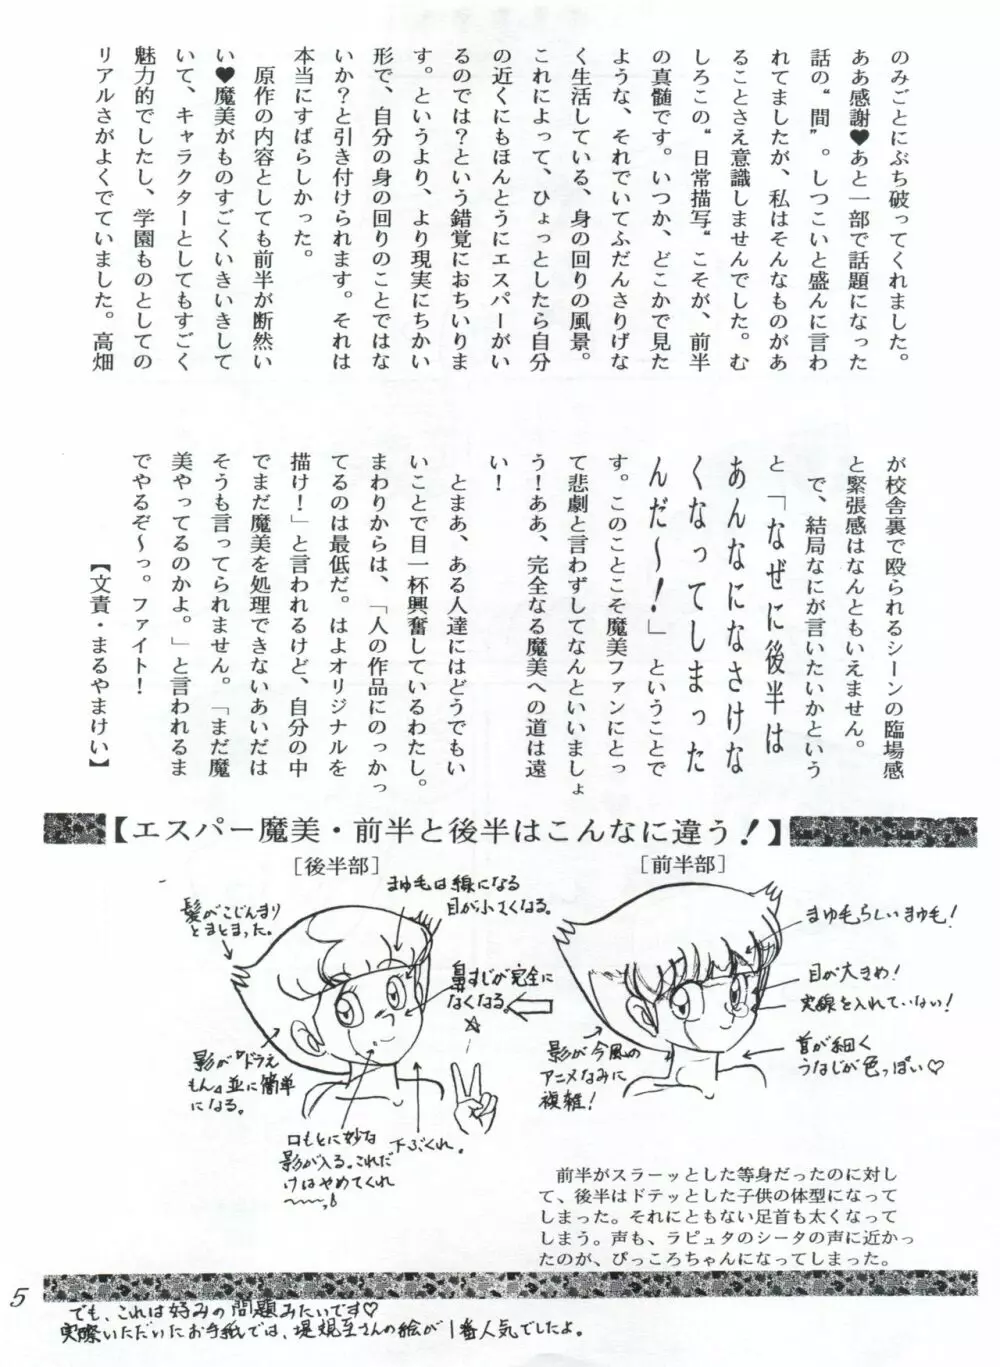 のみごとにぶち破ってくれました。
ああ感謝♥あと一部で話題になった
話の〝間〟。しつこいと盛んに言わ
れてましたが、私はそんなものがあ
ることさえ意識しませんでした。む
しろこの〝日常描写〟こそが、前半
の真髄です。いつか、どこかで見た
ような、それでいてふだんさりげな
く生活している、身の回りの風景。
これによって、ひょっとしたら自分
の近くにもほんとうにエスパーがい
るのでは?という錯覚におちいりま
す。というより、より現実にちかい
形で、自分の身の回りのことではな
いか?と引き付けられます。それは
本当にすばらしかった。
原作の内容としても前半が断然い
い♥魔美がものすごくいきいきして
いて、キャラクターとしてもすごく
魅力的でしたし、学園ものとしての
リアルさがよくでていました。高畑
が校舎裏で殴られるシーンの臨場感
と緊張感はなんともいえません。
で、結局なにが言いたいかという
と「なぜに後半は
あんなになさけな
くなってしまった
んだ〜!」ということで
す。このことこそ魔美ファンにとっ
て悲劇と言わずしてなんといいましょ
う!ああ、完全なる魔美への道は遠
い!
とまあ、ある人達にはどうでもい
いことで目一杯興奮しているわたし。
まわりからは、「人の作品にのっかっ
てるのは最低だ。はよオリジナルを
描け!」と言われるけど、自分の中
でまだ魔美を処理できないあいだは
そうも言ってられません。「まだ魔
美やってるのかよ。」と言われるま
でやるぞ〜っ。ファイト!
【文責・まるやまけい】
【エスパー魔美・前半と後半はこんなに違う!】
[前半部]
まゆ毛らしいまゆ毛!
目が大きめ!
実線を入れていない!
首が細く
うなじが色っぽい♡
影が今風の
アニメなみに
複雑!
[後半部]
まゆ毛は線になる
目が小さくなる。
髪がこじんまり
とまとまった。
鼻すじが完全に
なくなる。
☆
影が『ドラえ
もん』並に簡単
になる。
口もとに妙な
影が入る。これだ
けはやめてくれ
〜〜〜っ!
下ぶくれ。
前半がスラーッとした等身だったのに対し
て、後半はドテッとした子供の体型になって
しまった。それにともない足首も太くなって
しまう。声も、ラピュタのシータの声に近かっ
たのが、ぴっころちゃんになってしまった。
でも、これは好みの問題みたいです♡
実際いただいたお手紙では、堤規至さんの絵が1番人気でしたよ。
5